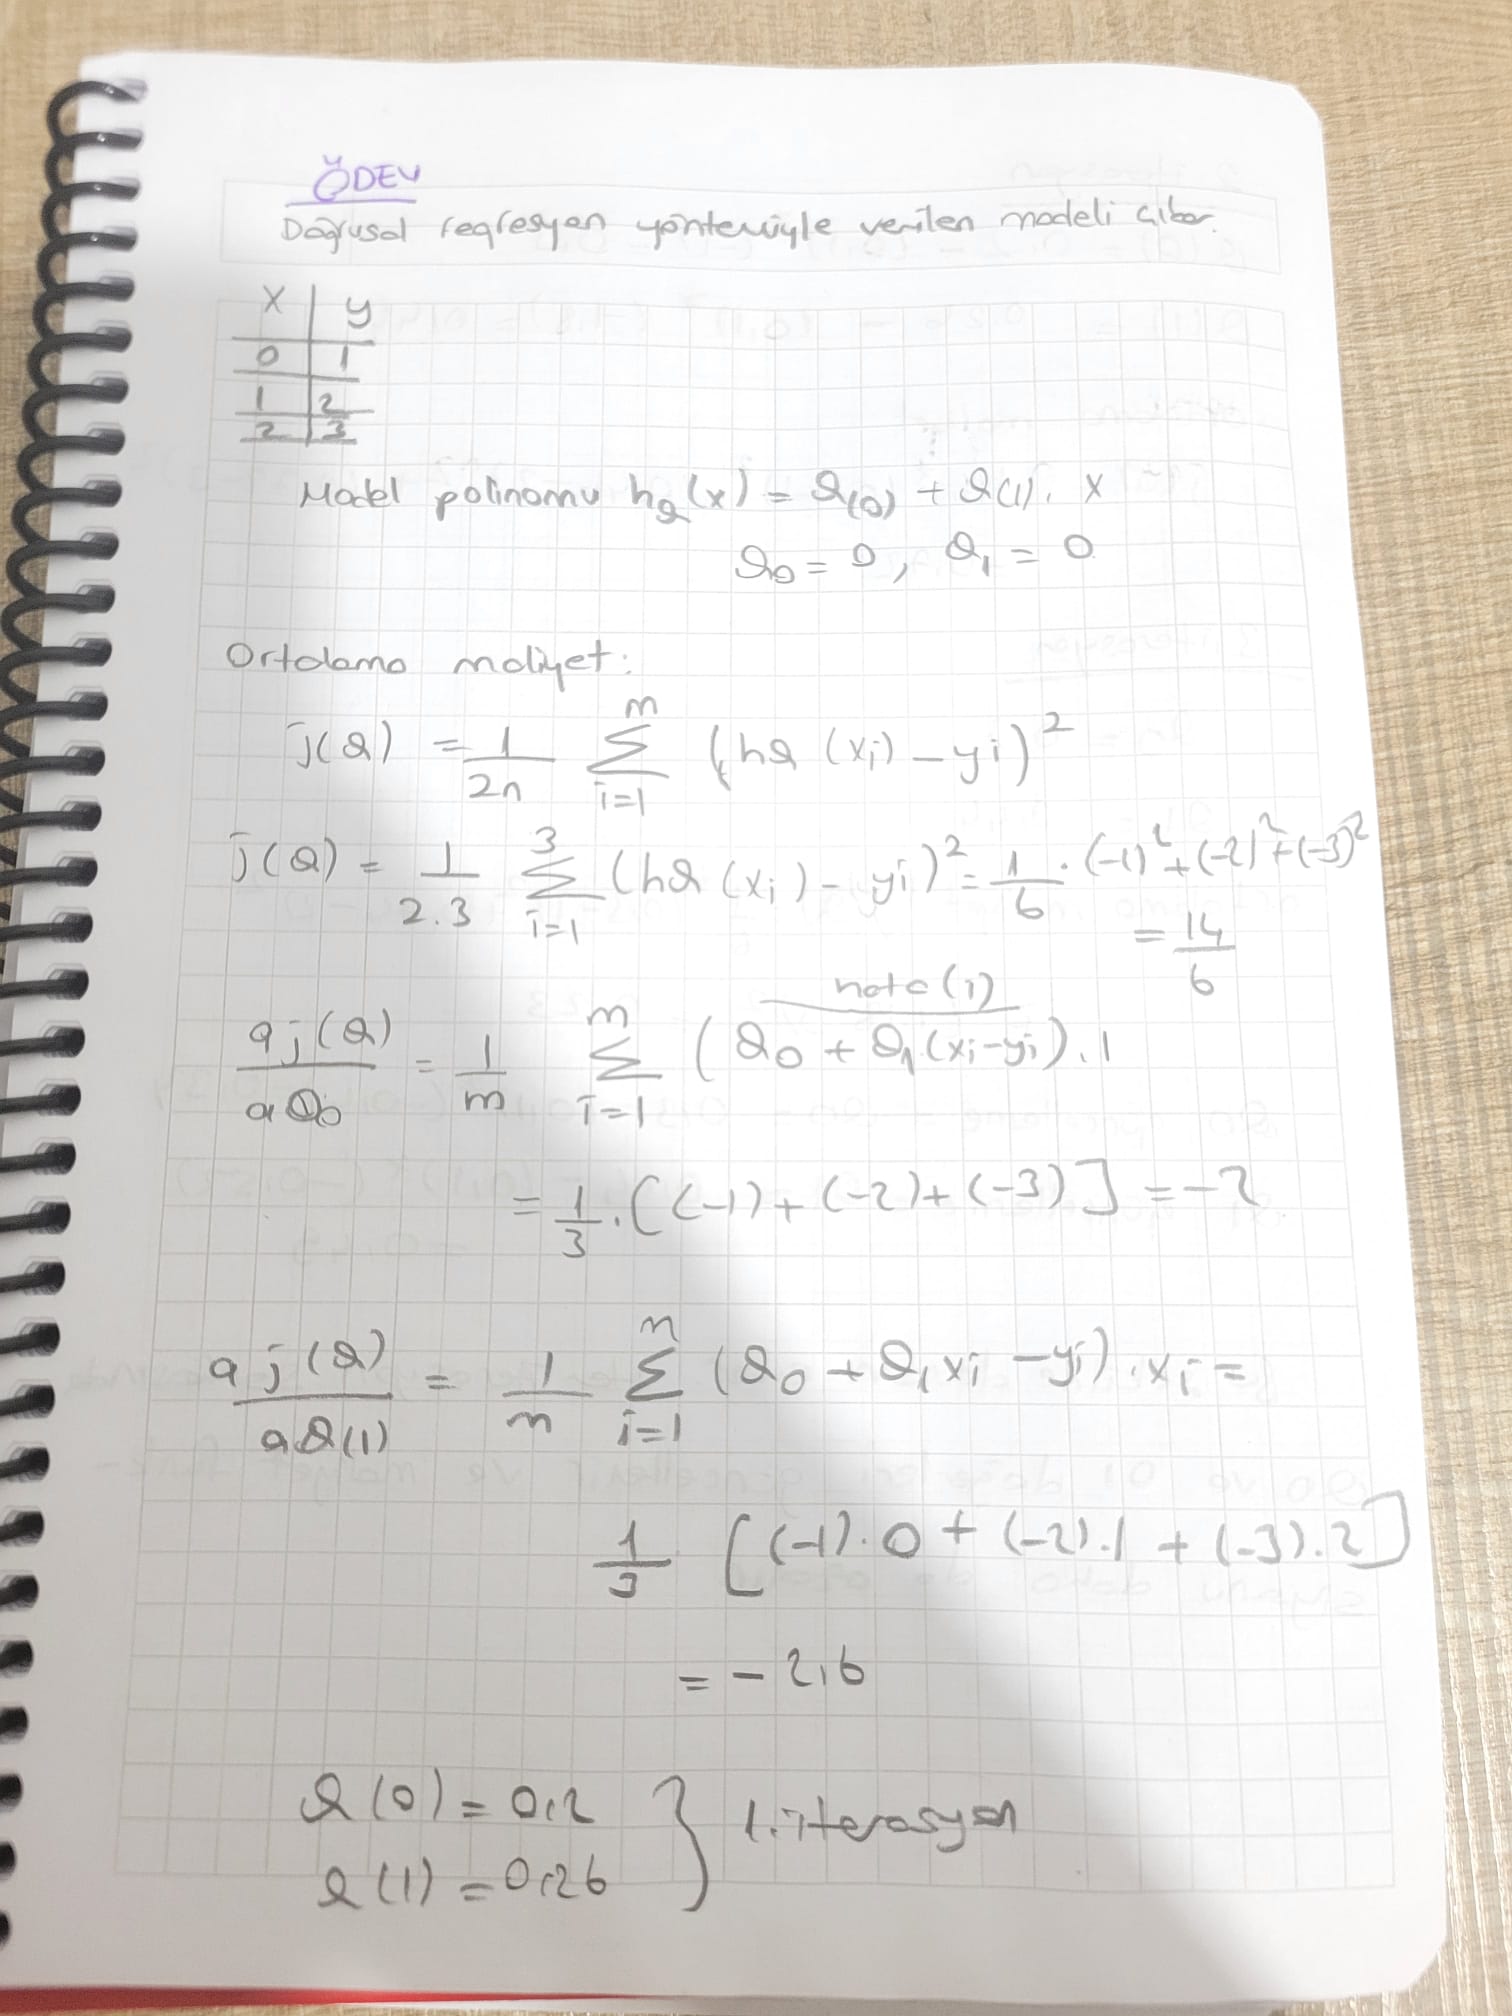 ÖDEV
Doğrusal regresyon yöntemiyle verilen modeli çıkar.
x | y
0 | 1
1 | 2
2 | 3
Model polinomu hθ(x) = θ(0) + θ(1). x
θ0 = 0, θ1 = 0
Ortalama maliyet:
j(θ) = 1/2n m∑i=1 (hθ (xi) - yi)²
j(θ) = 1/2.3 3∑i=1 (hθ (xi) - yi)² = 1/6 . (-1)² + (-2)² + (-3)²
= 14/6
hata(i)
∂j(θ)/∂θ0 = 1/m m∑i=1 (θ0 + θ1(xi-yi).1
= 1/3 . [(-1) + (-2) + (-3)] = -2
∂j(θ)/∂θ(1) = 1/m m∑i=1 (θ0 + θ1xi - yi).xi =
1/3 [(-1).0 + (-2).1 + (-3).2]
= -2,6
θ(0) = 0,2
θ(1) = 0,26 } 1.iterasyon